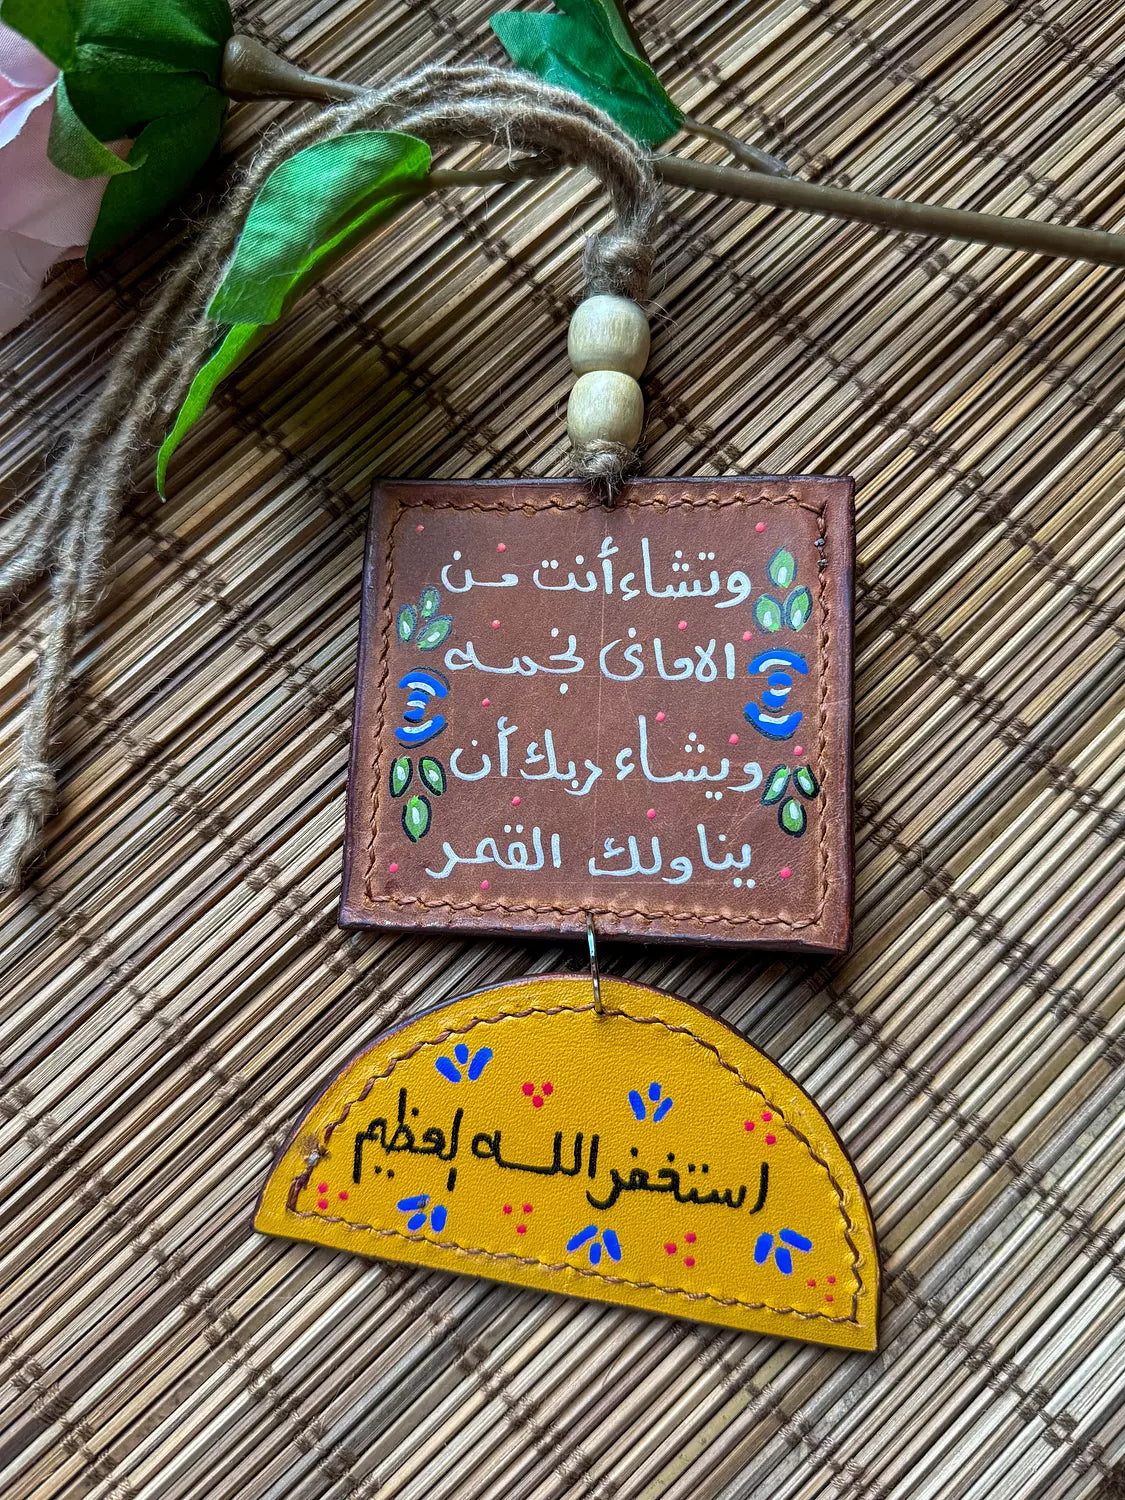 وتشاء أنت من
الاماني نجمه
ويشاء ربك أن
يناولك القمر
استغفر الله العظيم